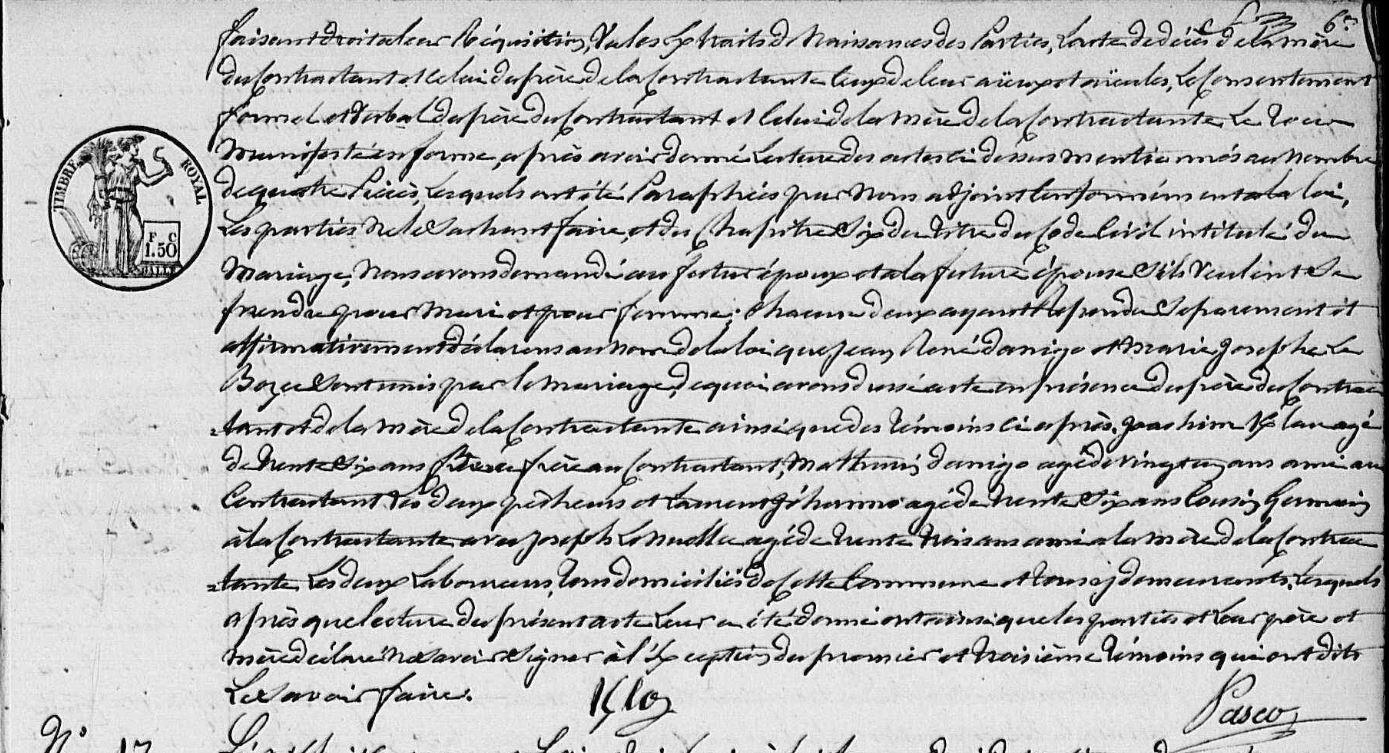 6e
faisant droit à leur Réquisition, Vu les Extraits de Naissances des Parties, L'acte de décès de la mère
du Contractant et Celui du père de la Contractante Ceux de leur aïeux et aïeules, Le Consentement
formel et Verbal du père du Contractant et Celui de la Mère de la Contractante Le Tout
TIMBRE ROYAL
Manifesté en forme, après avoir donné Lecture des actes ci dessus mentionnés au nombre
de quatre Pièces, Lesquels ont été Paraphées par Nous adjoint Conformément à la loi,
F. C
1.50
Les parties Ne le Sachant faire, et du Chapitre Six du titre du Code Civil intitulé du
Mariage, Nous avons demandé au futur époux et à la future épouse S'ils Veulent Se
prendre pour Mari et pour femme; Chacun d'eux ayant Répondu Séparement et
affirmativement déclarons au nom de la loi que Jean René danigo et Marie Josephe Le
Bozec Sont unis par le mariage, de quoi avons dressé acte en présence du père du Contrac
=tant et de la mère de la Contractante ainsi que des témoins ci après, Joachim agé
de trente Six ans frère au Contractant, Mathurin danigo agé de vingt ans ami au
Contractant Les deux pêcheurs et Laurent Jéhanno agé de trente Six ans Cousin Germain
à la Contractante avec Joseph agé de trente trois ans ami à la mère de la Contrac
=tante Les deux Laboureurs, tous domiciliés de Cette Commune et tous y demeurants, Lesquels
après que lecture du présent acte Leur a été donné ont ainsi que les parties et Leur père et
mère déclaré Ne Savoir Signer à l'Exception du premier et troisième témoins qui ont dit
Le Savoir faire.
Pasco
N° 17